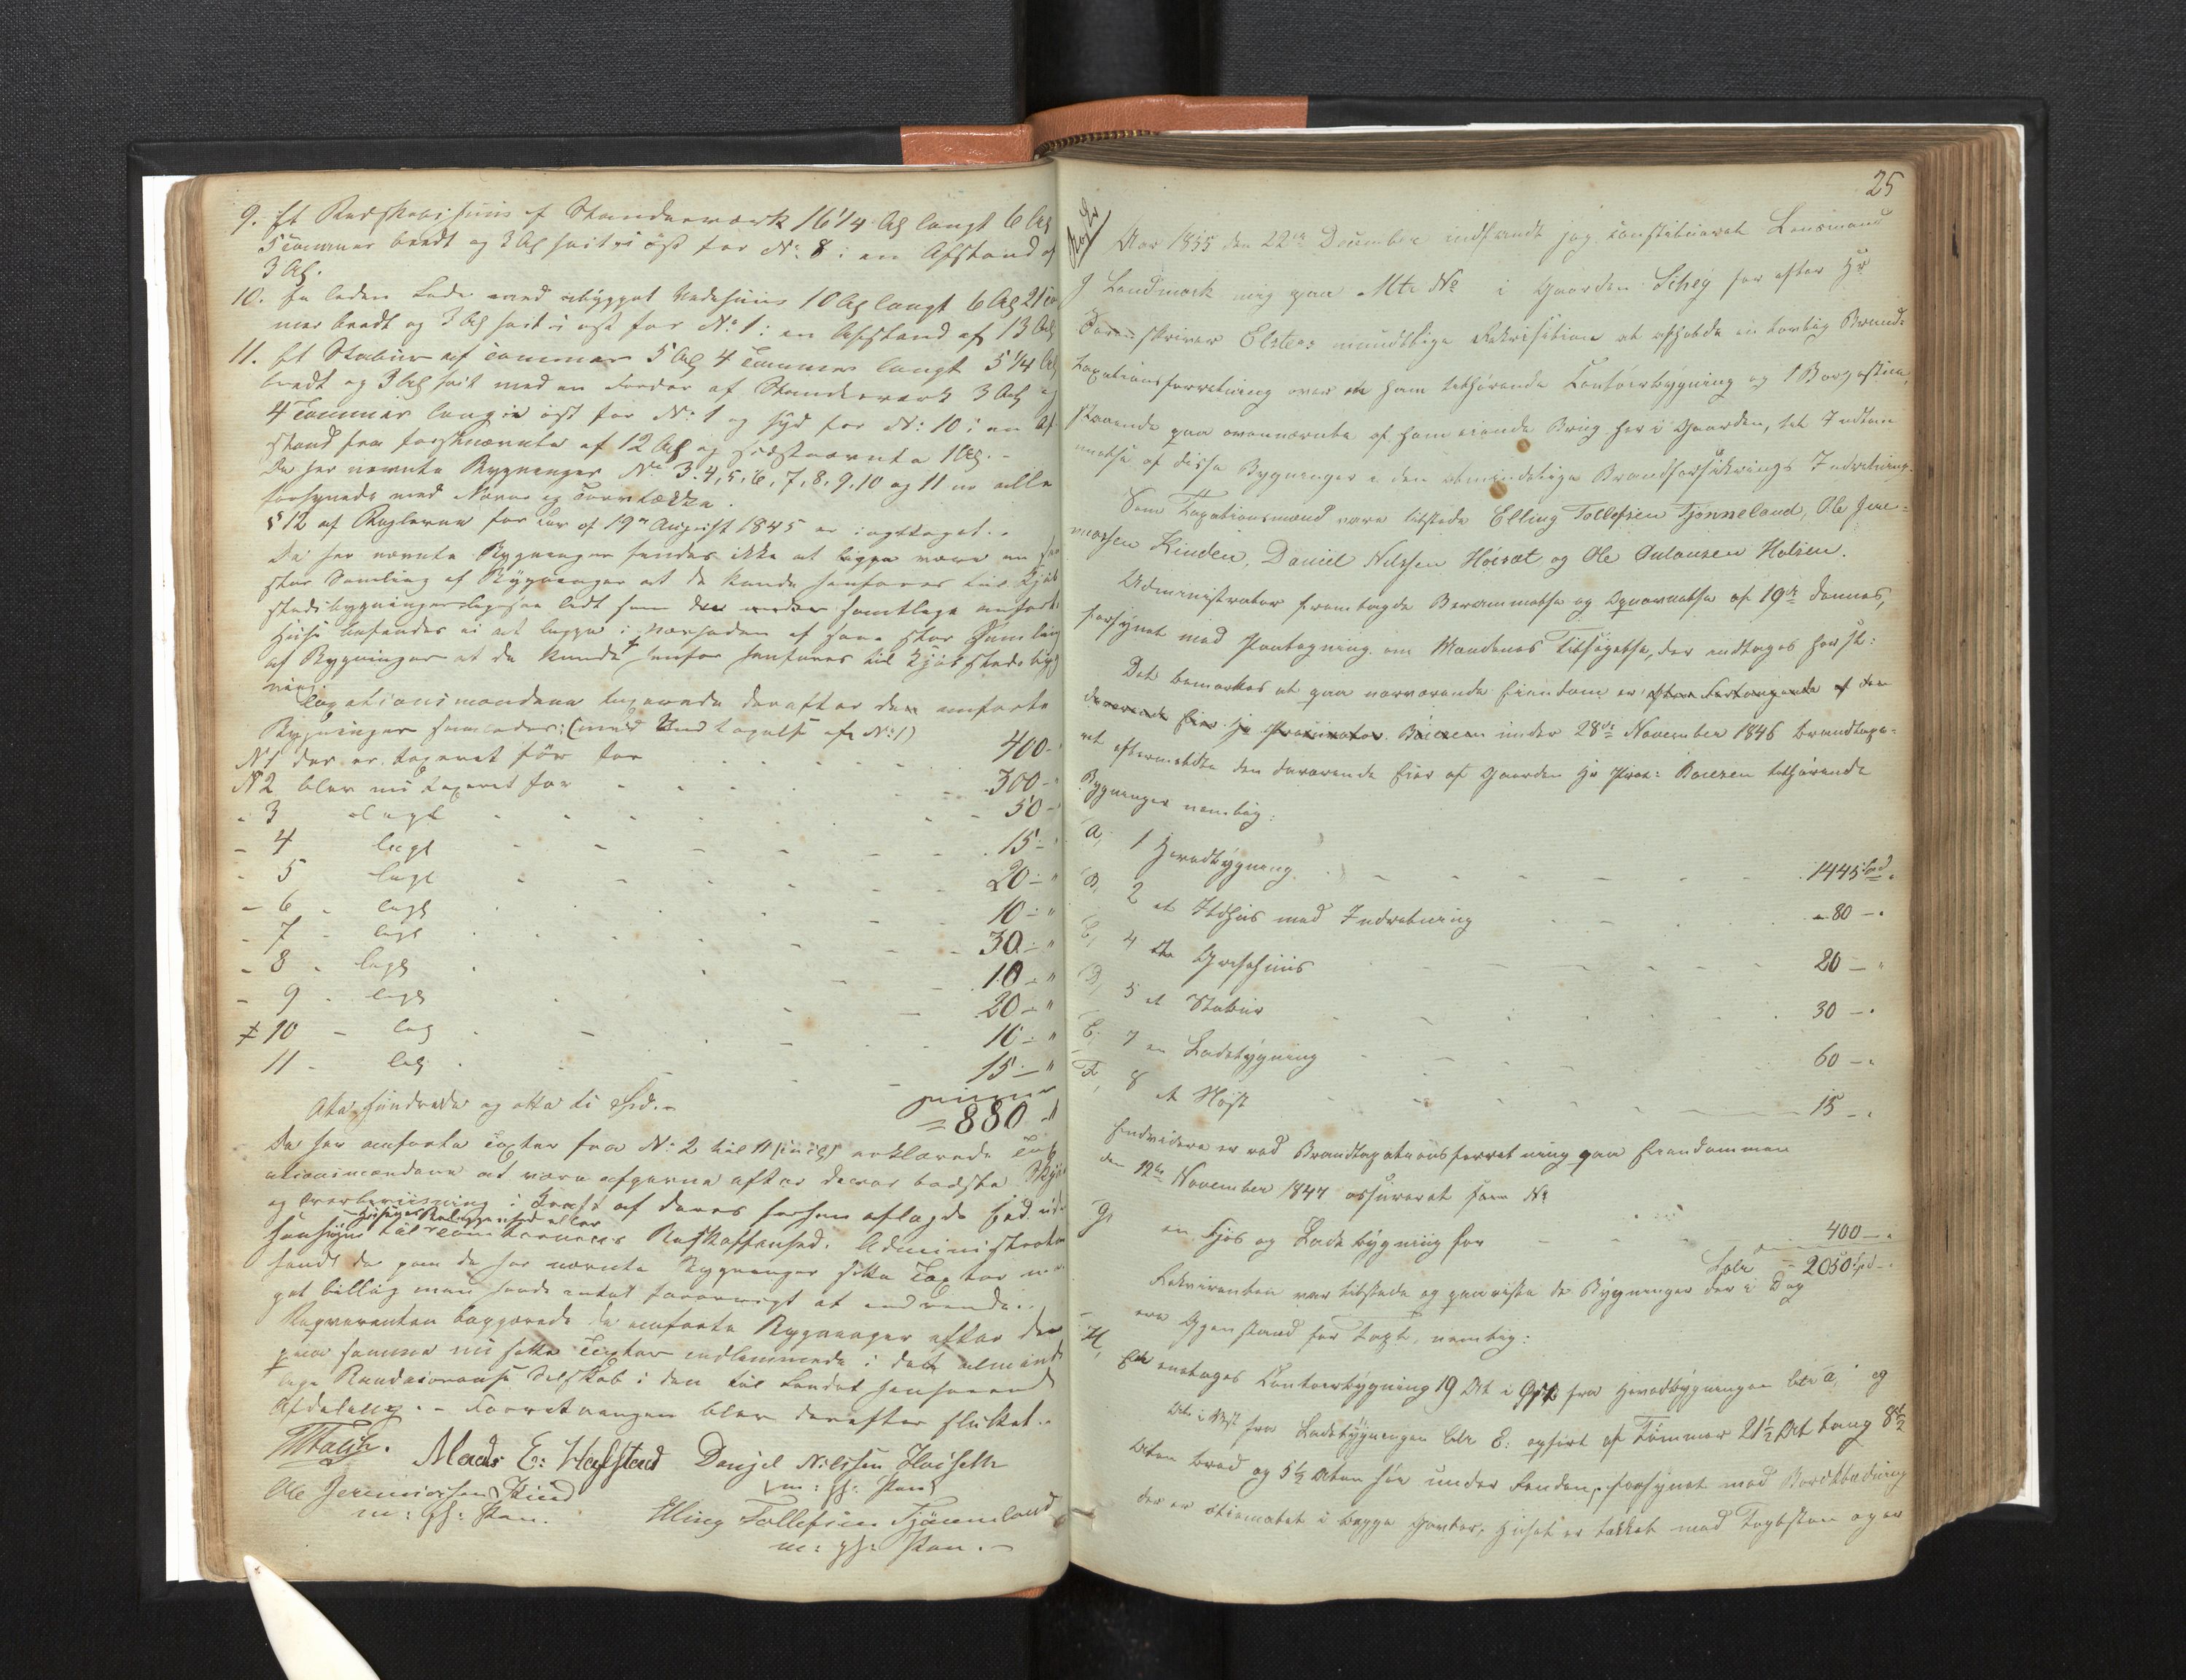 9. Et Redskabshuus af Standerværk 16 1/4 Al langt 6 Al
5 Tommer bredt og 3 Al høit i øst for No: 8 i en Afstand af
3 Al.
10. En laden Lade med tilbygget Vedehuus 10 Al langt 6 Al 21 Tom
mer bredt og 3 Al høit i øst for No: 1: en Afstand af 13 Al
11. Et Stabur af Tømmer 5 Al 4 Tommer langt 5 1/4 Al
bredt og 3 Al høit med en af Standerværk 3 Al og
4 Tommer lang i øst for No: 1 og syd for No: 10 i en Af
stand fra førstnævnte af 12 Al og sidstnævnte 1 Al. -
De her nævnte Bygninger No 3. 4, 5, 6, 7, 8, 9. 10 og 11 ere alle
forsynede med Næver og Torvtække.
§ 12 af Reglerne for Lov af 19de August 1845 er iagttaget. -
De her nævnte Bygninger fandtes ikke at ligge være en saa
stor Samling af Bygninger at de kunde henføres til Kjøb
stadsbygninger ligesaa lidt som samtlige anførte
Huse befandtes ei at ligge i Nærheden af saa stor Samling
af Bygninger at de kunde henføres til Kjøbstadsbyg
ning.
Taxationsmændene taxerede derefter den anførte
Bygninger saaledes: (med Undtagelse af No: 1)
No 1 der er taxeret før for 400 -
No 2 blev nu taxeret for 300 -
- 3 - 50 -
- 4 - 15 -
- 5 - 20 -
- 6 - 10 - "
- 7 - 30 - "
- 8 - 10 - "
- 9 - 20 - "
10 - 10 - "
11 - 15 - "
Otte hundrede og otte ti Spd. - = 880 "
De her anførte Taxter fra No: 2 til 11 incl. erklærede Tax
ationsmændene at være afgivne efter deres bedste Skjøn
og Overbeviisning i Kraft af deres forhen aflagde Eed uden
Hensyn til Beskaffenhed. Administrator
fandt de paa de her nævnte Bygninger satte Taxter me
get billig man havde intet forøvrigt at indvende. -
Reqvirenten begjærede de anførte Bygninger efter den
paa samme nu satte Taxter indlemmede i det alminde
lige Brandassurance Selskab i den til Landet henhørende
Afdeling. - Forretningen blev derefter sluttet. -
Mads E: Hafstad Daniel Nilssen Høiseth
m: p: Pen
Ole Jeremiassen Kind
m: p: Pen. Elling Tollefsen Tjønneland
m: p: Pen. -
25
Aar 1855 den 22de December indfandt jeg constitueret Lensmand
J Landmark mig paa Mtr No i Gaarden Schey for efter Hr
Sorenskriver Elsters mundtlige Rekvisition at afholde en lovlig Brand-
taxationsforretning over en ham tilhørende Contoirbygning og 1 Borgestue,
staaende paa ovennævnte af ham eiende Brug her i Gaarden, til Indlem
melse af disse Bygninger i den almindelige Brandforsikrings Indretning.
Som Taxationsmænd vare tilstede Elling Tollefsen Tjønneland, Ole Jere-
miassen Kinden, Daniel Nilssen Høisæt og Ole Olausen Halsen.
Administrator fremlagde Berammelse og Opnævnelse af 19de dennes,
forsynet med Paategning om Mændenes Tilsigelse, der indtages her st:
Det bemærkes at paa nærværende Eiendom er efter Forlangende af den
daværende Eier Hr Procurator Boiesen under 28de November 1846 brandtaxe-
ret eftermeldte den daværende Eier af Gaarden Hr Proc: Boiesen tilhørende
Bygninger nemlig:
A, 1 Hovedbygning - - - 1445 Spd -
B, 2 et Ildhus med Indretning - - 80 -
C, 4 et Grisehuus - - - 20 -
D, 5 et Stabur - - - 30 -
E, 7 en Ladebygning - - - 60 -
F, 8 et Nøst - - - 15 -
Endvidere er ved Brandtaxationsforretning paa Eiendommen
den 12te November 1847 assureret som No
G, en Fjøs og Ladebygning for - - 400 -
- 2050 Spd -
Rekvirenten var tilstede og paaviste de Bygninger der i Dag
ere Gjenstand for Taxt, nemlig:
H, En eenetages Contoirbygning 19 Al i Øst fra Hovedbygningen Litr a, og
Al i Vest fra Ladebygningen Litr E: opført af Tømmer 21 1/2 Al lang 8 1/2
Alen bred og 5 1/2 Alen høi under Renden, forsynet med Bordklædning
der er oliemalet i begge Gavler, Huset er tækket med Taglsten og er